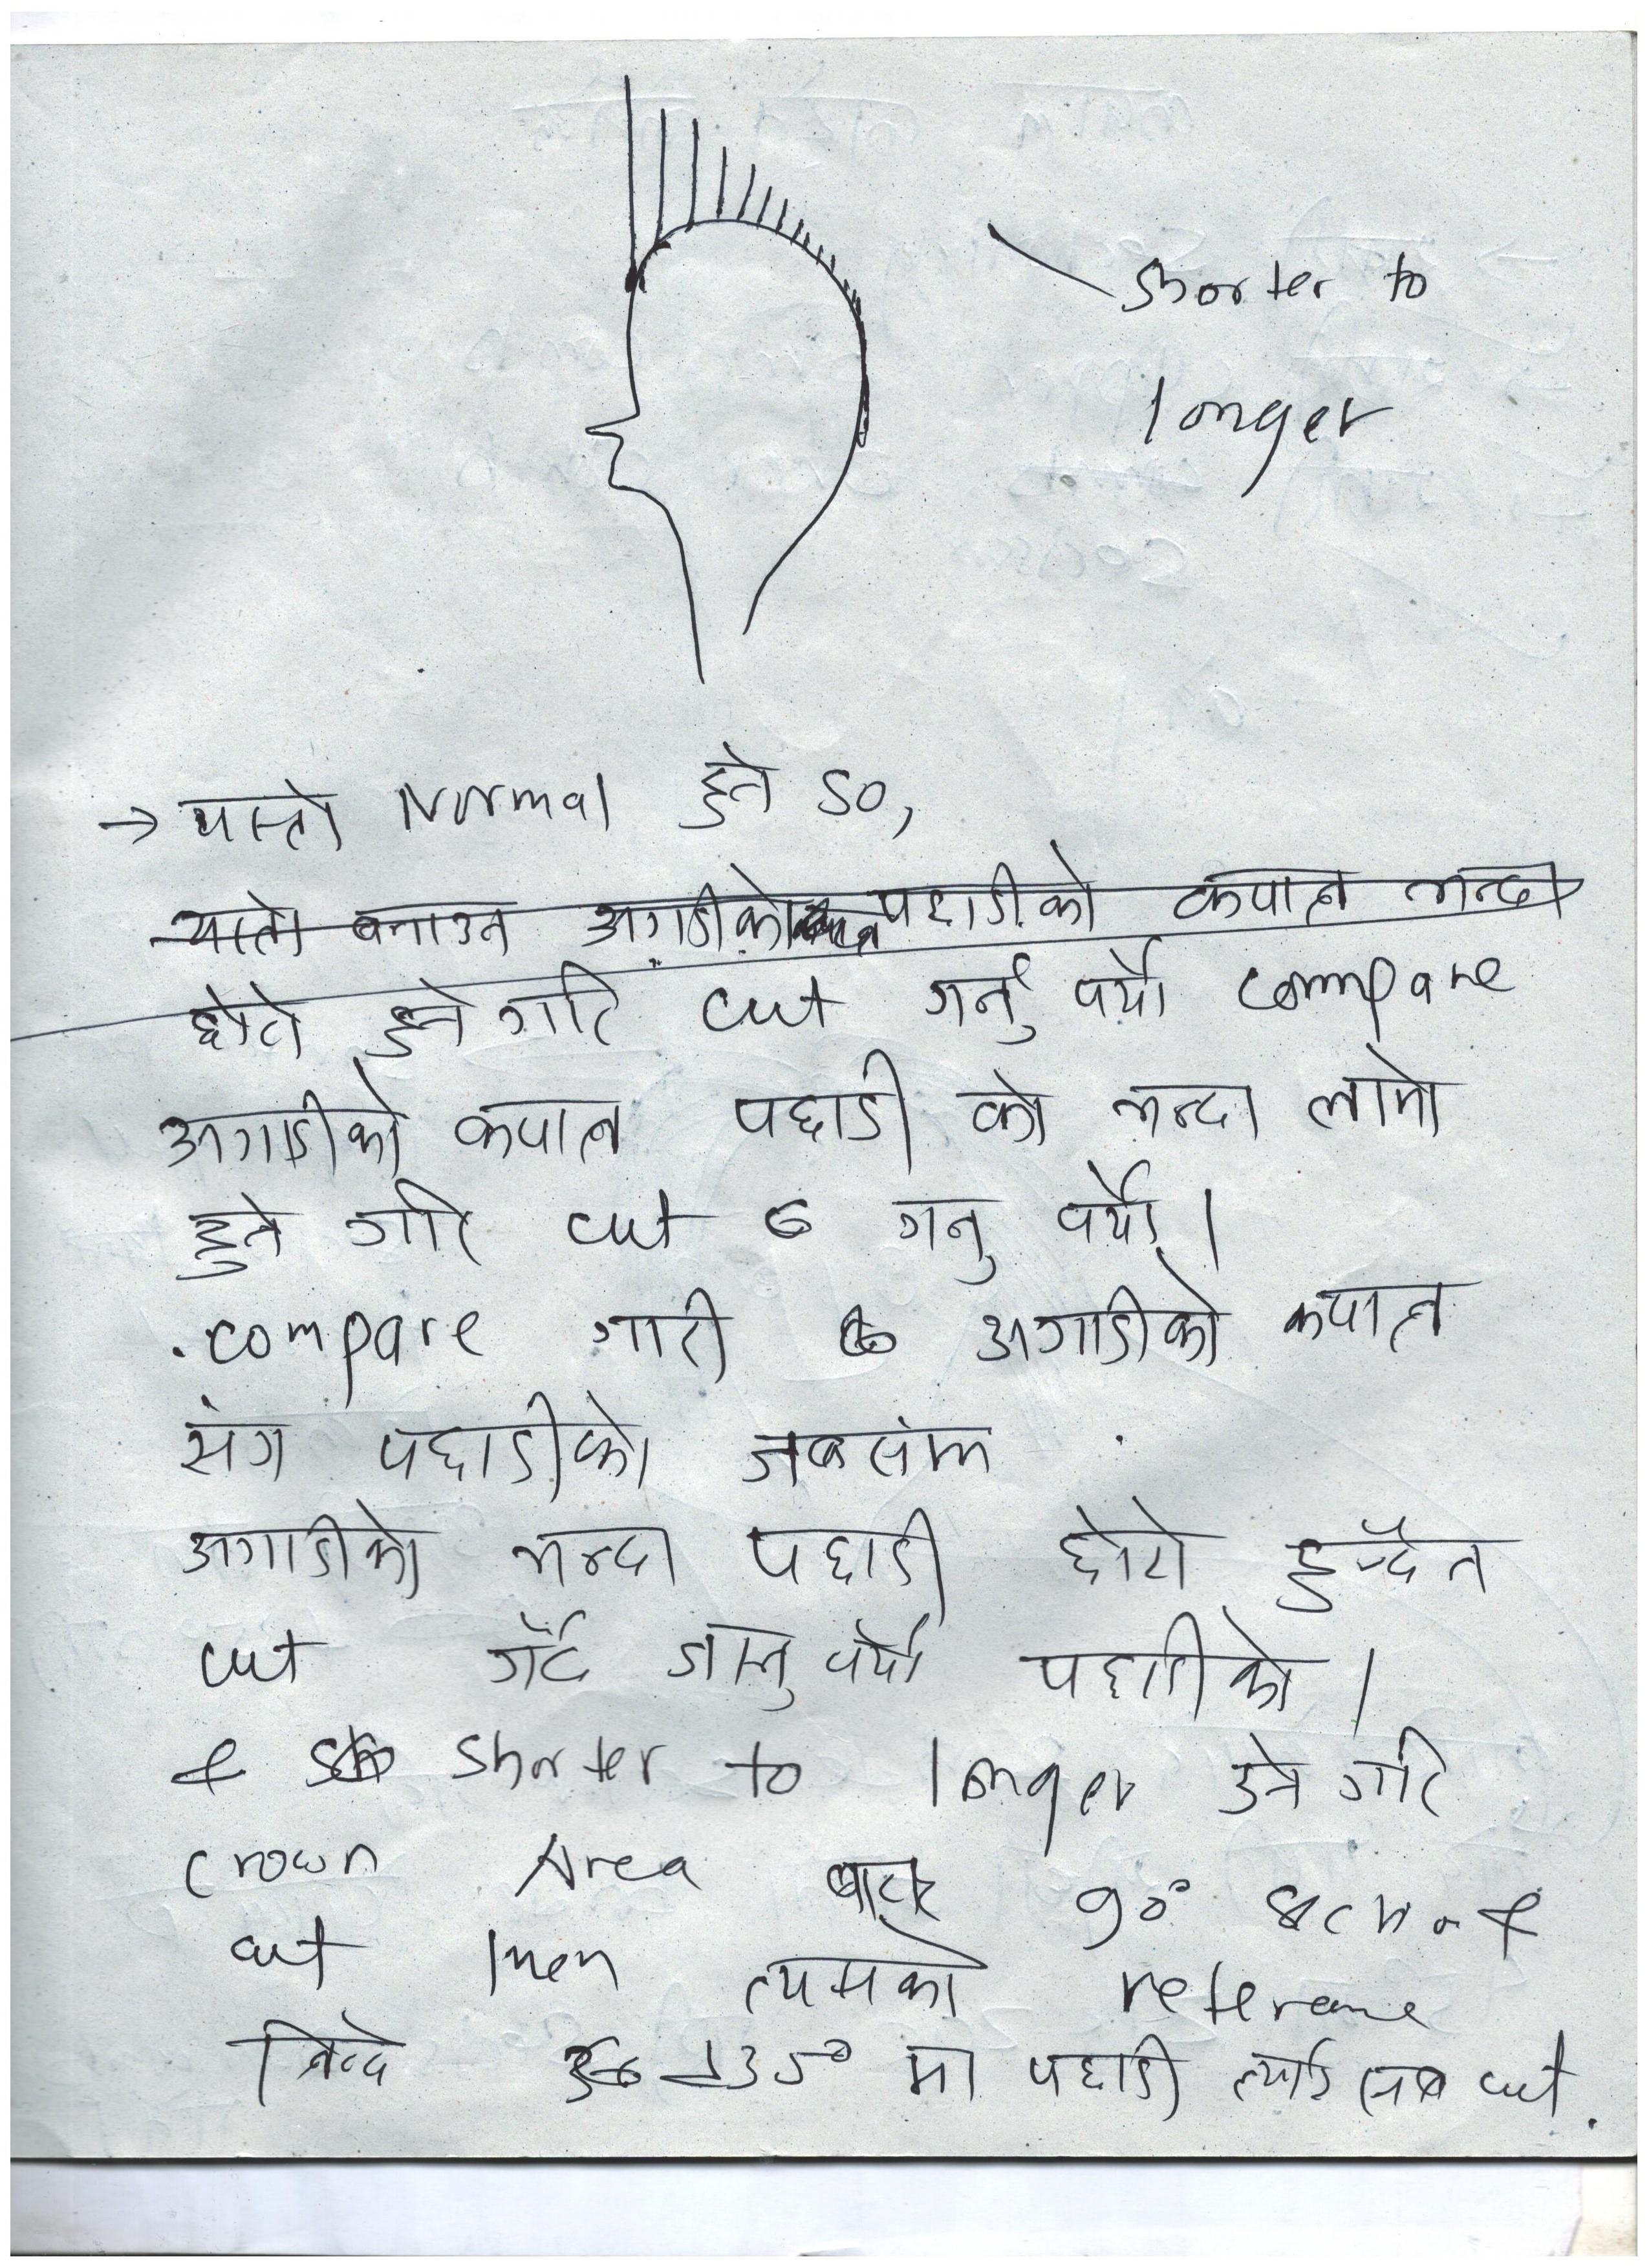 shorter to
longer
→ यास्तो Normal हुने so,
यास्तो बनाउन अगाडीको पछाडीको कपाल भन्दा
छोटो हुने गरि cut गर्नु पर्यो compare
अगाडीको कपाल पछाडी को भन्दा लामो
हुने गरि cut गनु पर्यो।
.compare गारी अगाडीको कपाल
संग पछाडीको जबसंम
अगाडीको भन्दा पछाडी छोटो हुन्दैन
cut गर्दै जानु पर्यो पछाडीको।
& shorter to longer हुने गरि
crown Area बाट 90°
cut then त्यसको reference
लिन्दै 135° मा पछाडी cut.